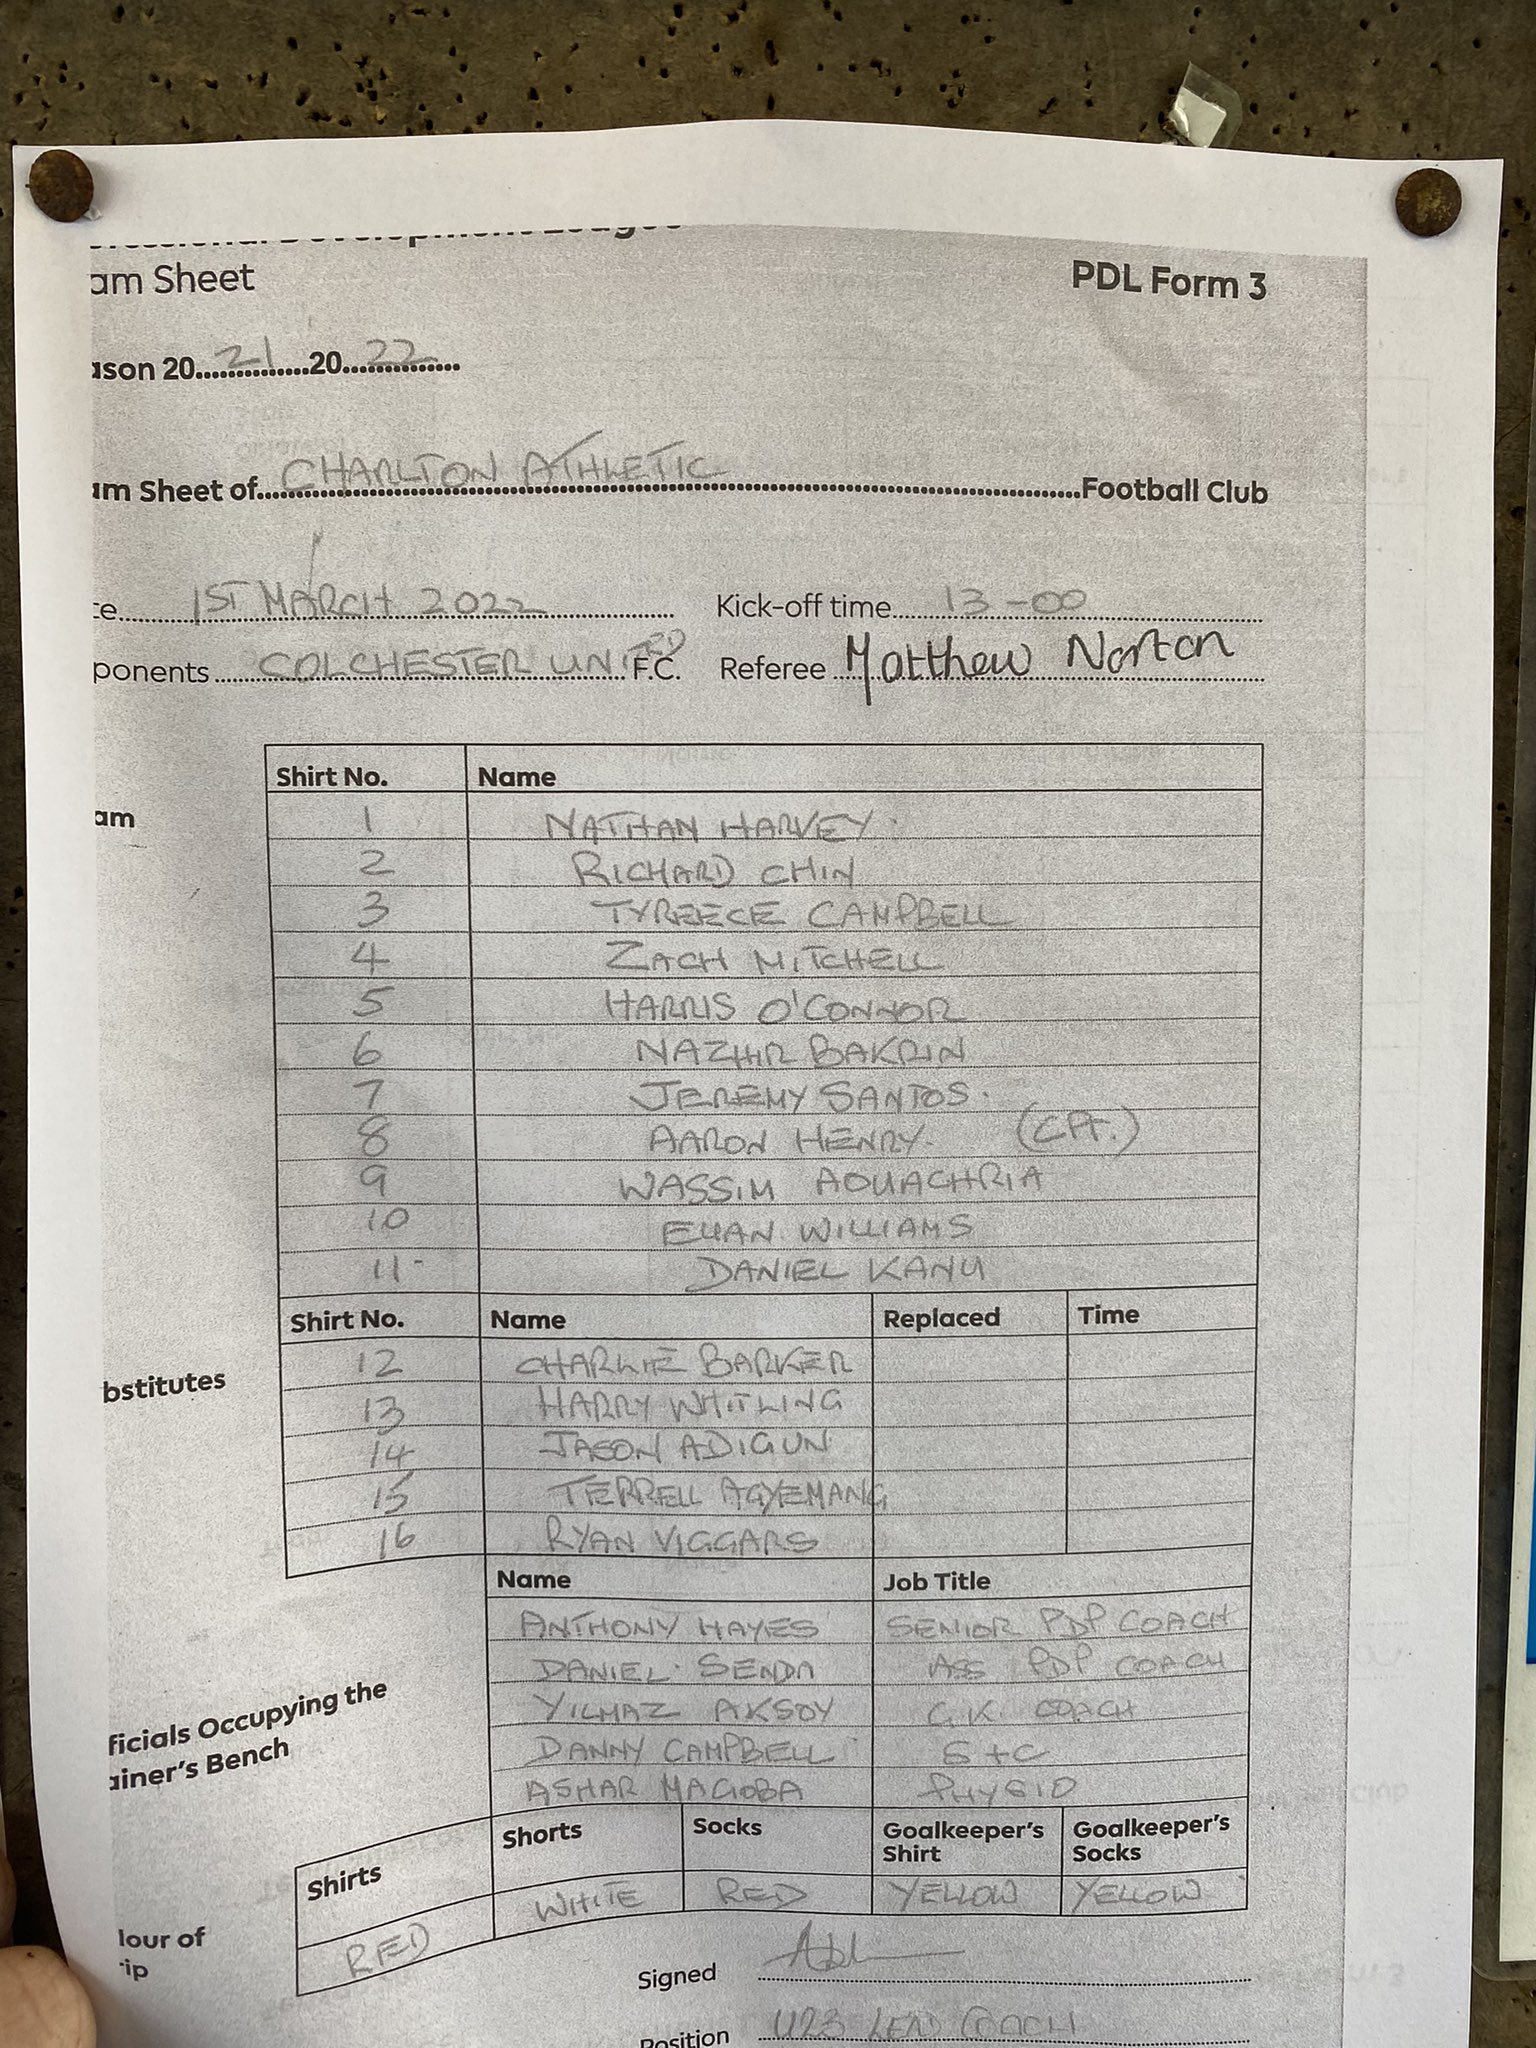 am Sheet
PDL Form 3
ason 20 21 20 22
am Sheet of CHARLTON ATHLETIC Football Club
te 1ST MARCH 2022 Kick-off time 13-00
ponents COLCHESTER UNITED F.C. Referee Matthew Norton
Shirt No. Name
am
1 NATHAN HARVEY.
2 RICHARD CHIN
3 TYREECE CAMPBELL
4 ZACH MITCHELL
5 HARRIS O'CONNOR
6 NAZHIR BAKRIN
7 JEREMY SANTOS.
8 AARON HENRY. (CPT.)
9 WASSIM AOUACHRIA
10 EUAN WILLIAMS
11 - DANIEL KANU
Shirt No. Name Replaced Time
bstitutes
12 CHARLIE BARKER
13 HARRY WHITLING
14 JASON ADIGUN
15 TERRELL AGYEMANG
16 RYAN VIGGARS
Name Job Title
ficials Occupying the
ainer's Bench
ANTHONY HAYES SENIOR PDP COACH
DANIEL SENDA ASS PDP COACH
YILMAZ AKSOY G.K. COACH
DANNY CAMPBELL S+C
ASHAR MAGOBA PHYSIO
Shirts Shorts Socks Goalkeeper's Shirt Goalkeeper's Socks
lour of
ip
RED WHITE RED YELLOW YELLOW
Signed
Position U23 LEAD COACH